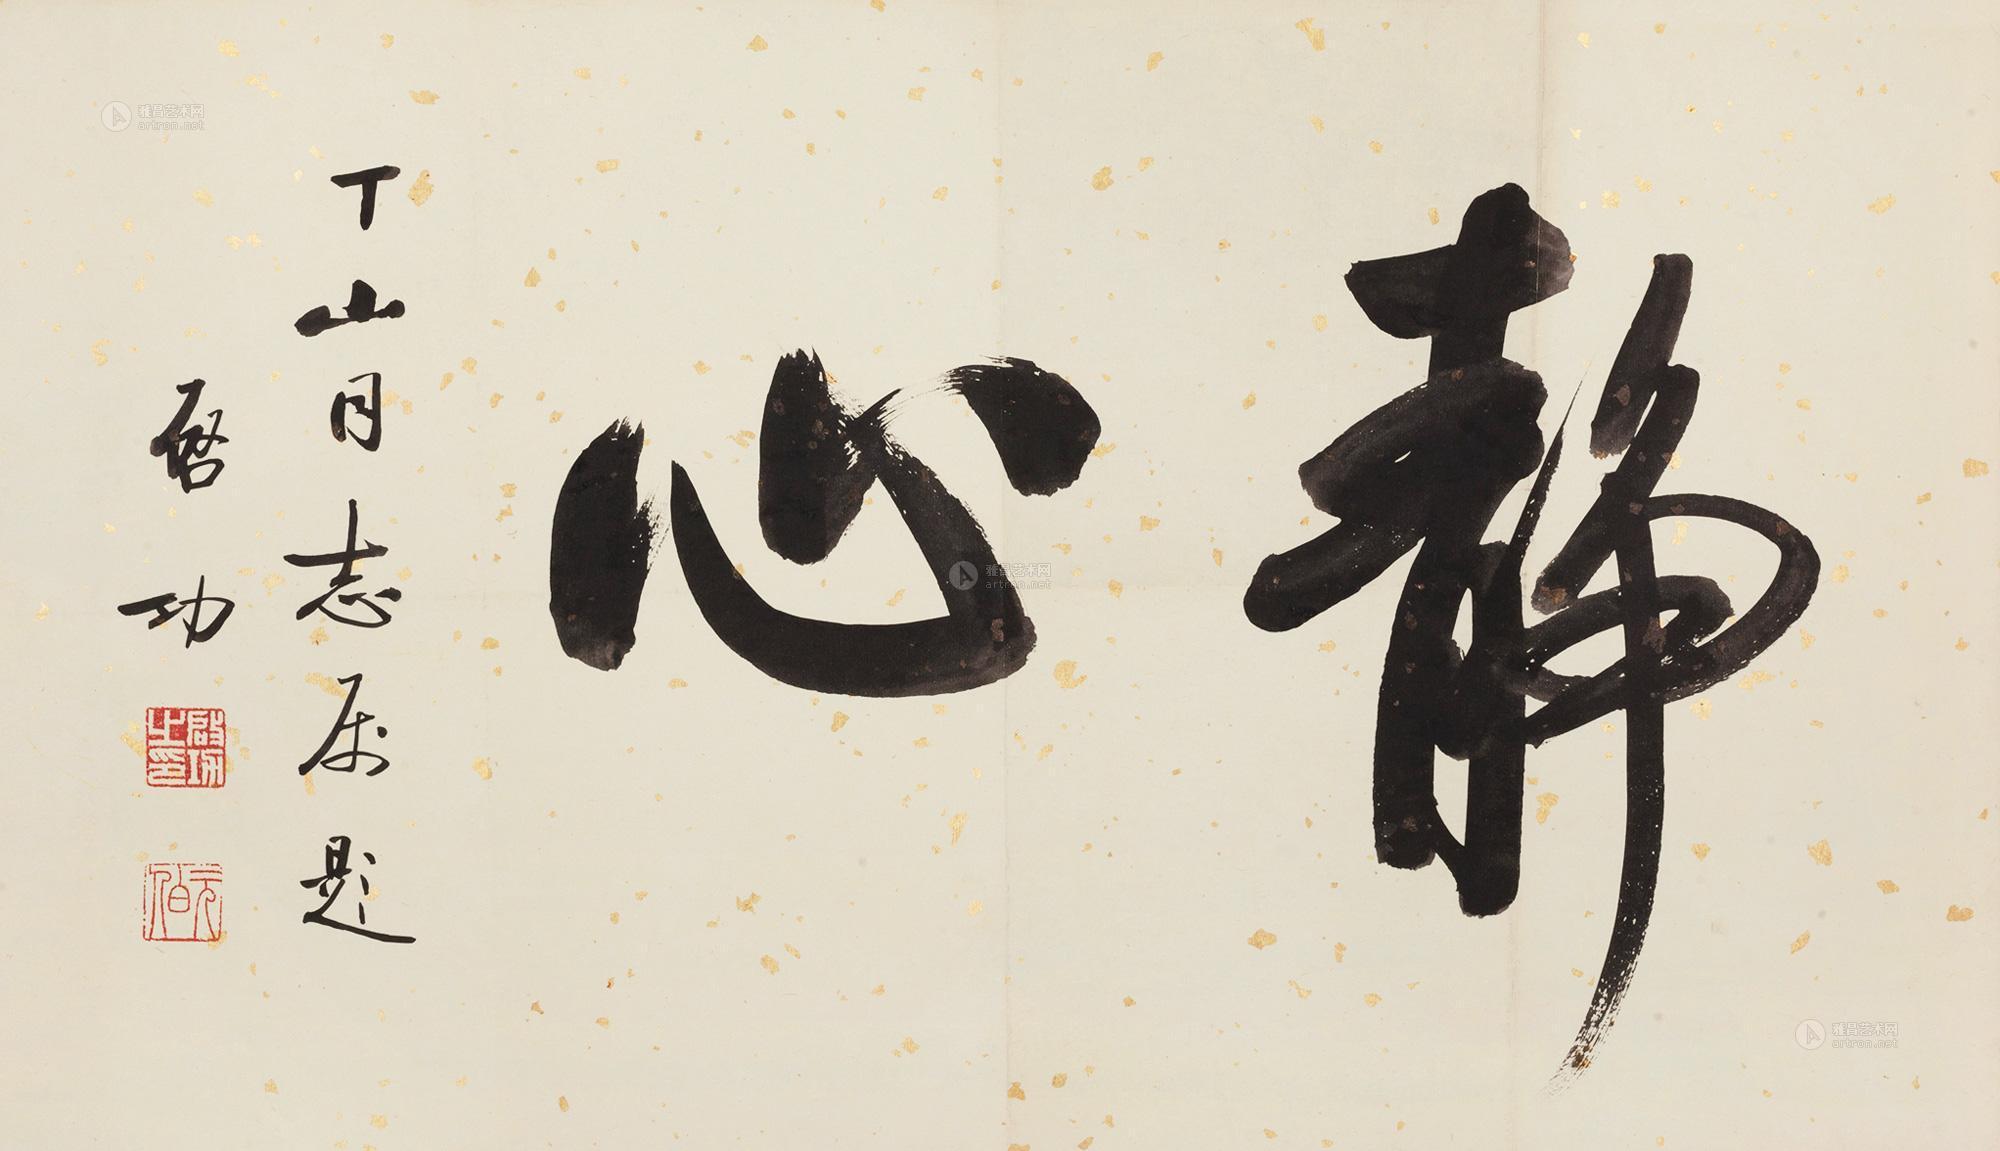 静心
丁山同志属题
啓功
啟功之印
元白
雅昌艺术网
artron.net
雅昌艺术网
artron.net
雅昌艺术网
artron.net